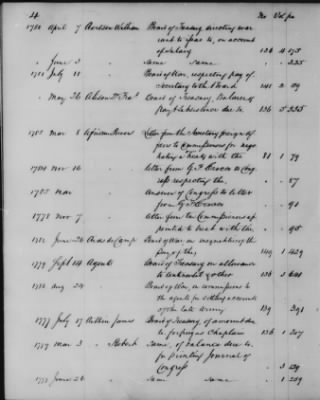 24 No Vol pa
1780 April 7 Acolson William Board of Treasury directing war
rant to issue to, on account
of salary 136 4 175
" June 3 " Same Same " " 225
1781 July 11 Board of War, respecting pay of
Secretary to the Board 148 2 89
" May 26 Board of Treasury, balance of
pay & subsistence due to 136 5 225
1785 Mar 8 letter from the Secretary
to Commissioners for nego
tiating a Treaty with the 81 1 79
1784 Nov 16 letter from to Cong
ress respecting the " 87
1785 Mar Answer of Congress to letter
from " 91
1778 Nov 7 letter from the Commissioners ap
pointed to treat with the " 95
1782 June 20 Aids de Camp Board of War, on
pay of the, 149 1 429
1779 Sept 14 Agents Board of Treasury on allowance
to Continental & other 136 3 641
1780 Aug 24 Board of War, on commissions to
the agents for settling accounts
of the late army 139 391
1777 July 17 Aitkin James Board of Treasury, of amount due
to, for pay as Chaplain 136 1 207
1779 Mar 3 " Robert Same, of balance due to
for Printing Journal of
Congress " 3 139
June 26 Same Same " 1 259